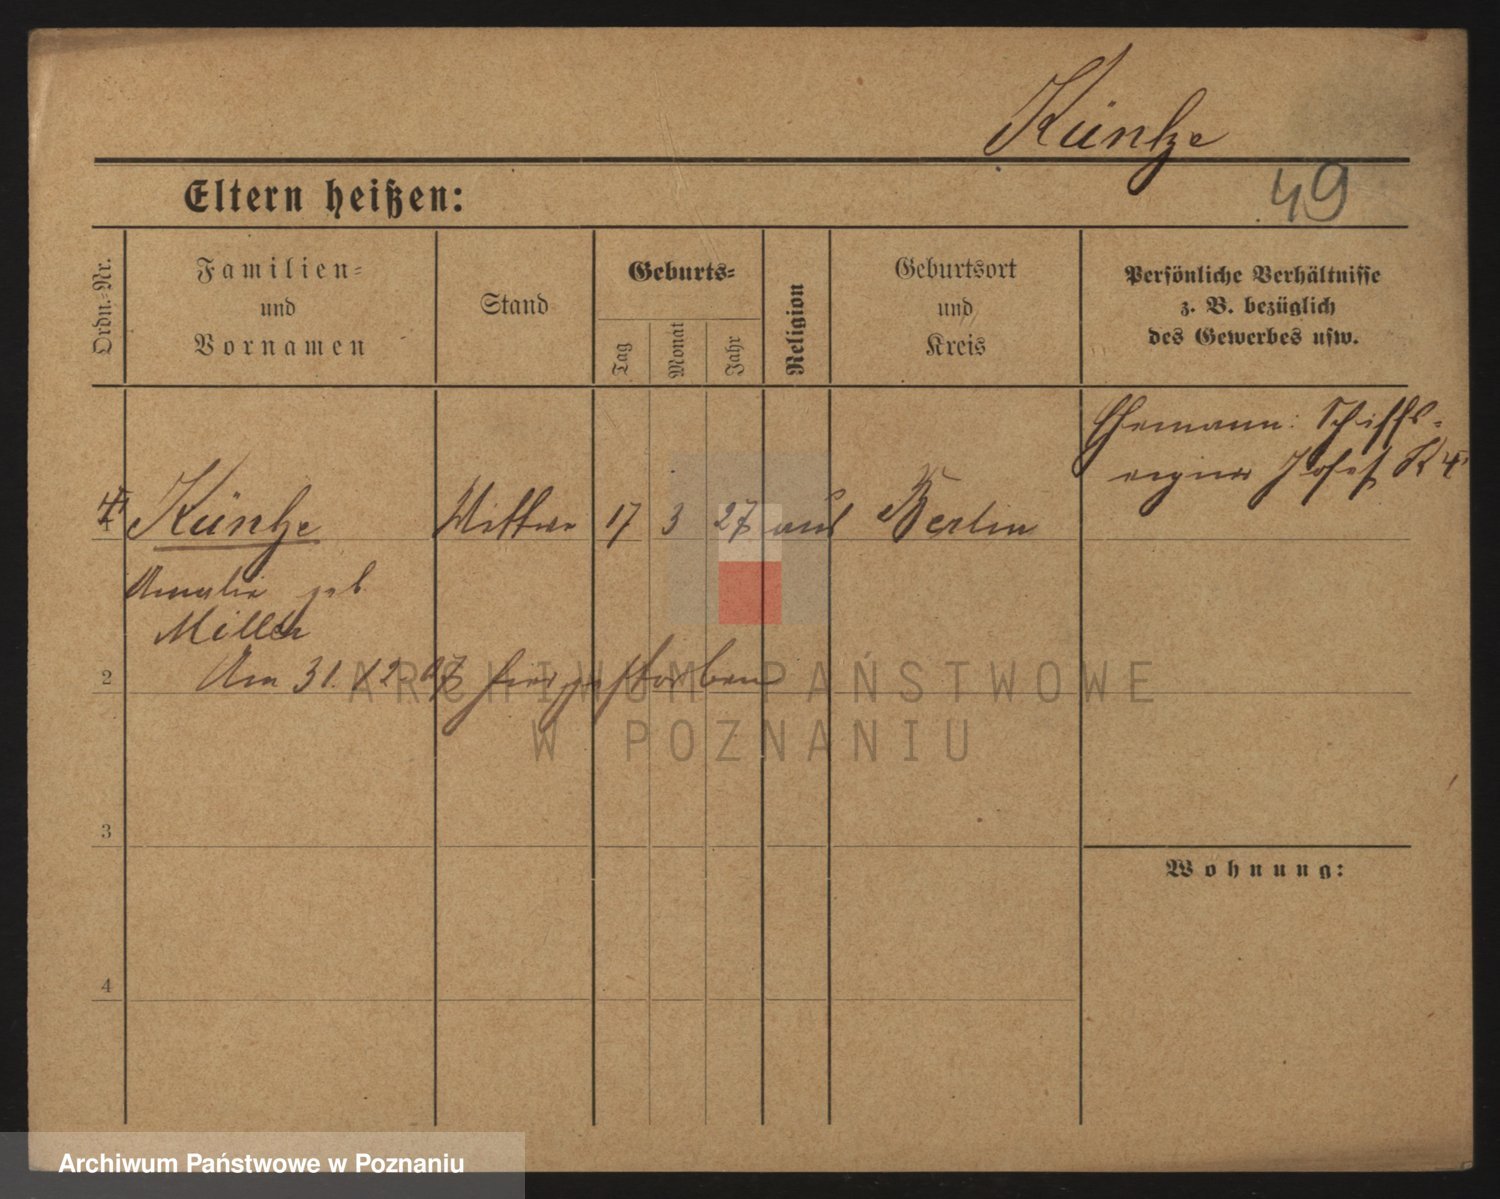 Küntze
49
Eltern heißen:
Ordn.-Nr.
Familien-
und
Vornamen
Stand
Geburts-
Tag
Monat
Jahr
Religion
Geburtsort
und
Kreis
Persönliche Verhältnisse
z. B. bezüglich
des Gewerbes usw.
Ehemann: Schiffs-
eigner Josef K
1 Küntze Wittwe 17 3 27 aus Berlin
Amalie geb.
Miller
2 Am 31. 12. 07 hier gestorben
3
Wohnung:
4
ARCHIWUM PAŃSTWOWE
W POZNANIU
Archiwum Państwowe w Poznaniu